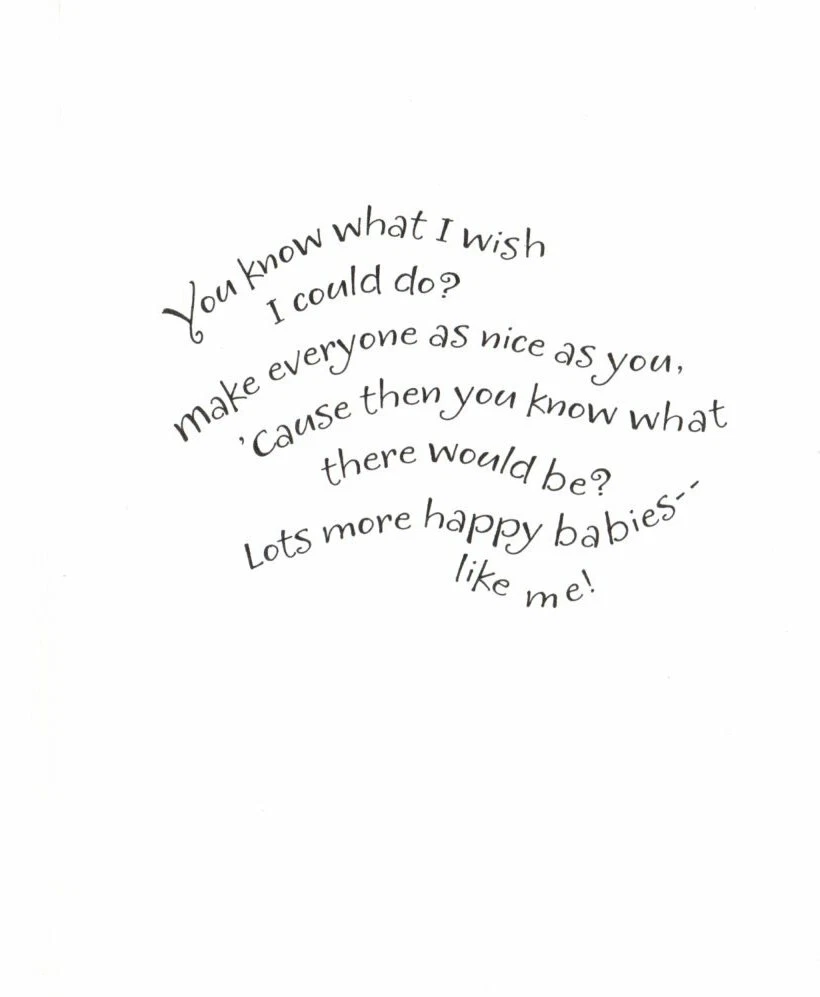 You know what I wish
I could do?
make everyone as nice as you,
'cause then you know what
there would be?
Lots more happy babies--
like me!